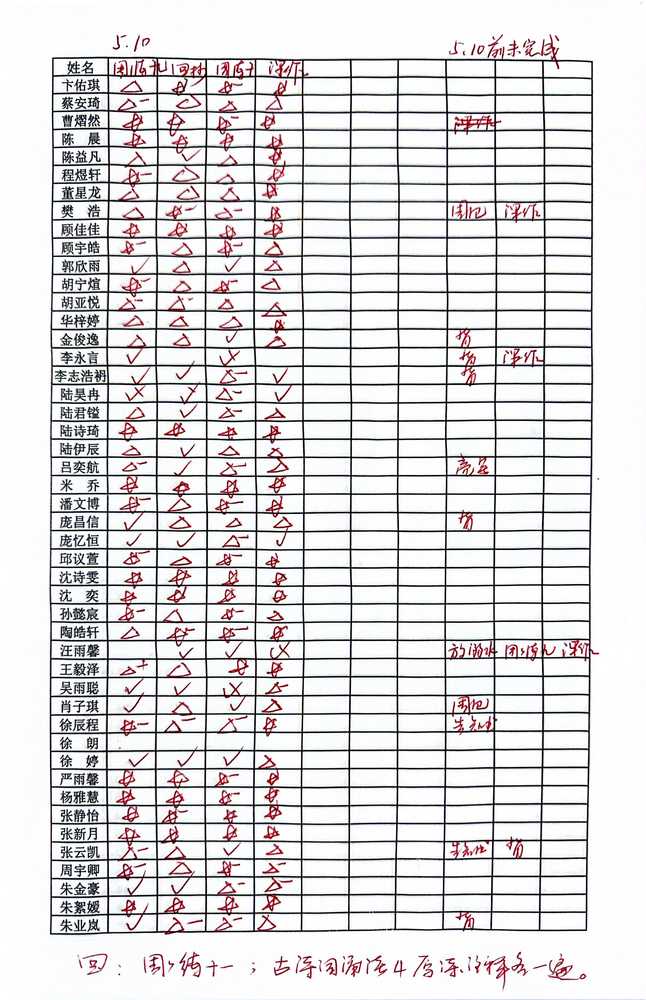 5.10 5.10前未完成
姓名 周练九 回材 周练十 课作
卞佑琪 △ ☆ ☆- ☆
蔡安琦 △- △ △ △
曹熠然 ☆ ☆ ☆ ☆
陈晨 ☆ ☆ ☆ ☆
陈益凡 △ ✓ △ ☆
程煜轩 ☆- △ △ ☆
董星龙 △ △ △ ☆
樊浩 △ ☆- △- ☆ 课作
顾佳佳 ☆ ☆ ☆ ☆
顾宇皓 ☆- △ ☆- △
郭欣雨 ✓ △ ✓ △
胡宁煊 ☆- △ ☆- △
胡亚悦 △- △- △ △
华梓婷 △ △ △ ☆
金俊逸 △ △ ✓ △
李永言 ✓ 课作
李志浩祤 ✓ ✓ △- ✓
陆昊冉
陆君镒 △ ✓ △- △
陆诗琦 ☆ ☆ ☆ ☆
陆伊辰 △ ✓ △ △
吕奕航 △- ✓ △- △
米乔 ☆ ☆ ☆ ☆
潘文博 ☆- △ ☆- ☆
庞昌信 ✓ △ △ △
庞忆恒 ✓ ✓ △- ✓
邱议萱 ☆- △ ☆- ☆
沈诗雯 ☆ ☆ ☆ ☆
沈奕 ☆ ☆ ☆ ☆
孙懿宸 ☆- △ ☆- △
陶皓轩 △ ☆- ☆- ☆
汪雨馨 ✓ ✓ 课作
王毅泽 △+ △ ☆ ☆
吴雨聪 ✓ ✓ △-
肖子琪 ✓ △ ✓ △
徐辰程 ☆- △- △- ☆ 告知书
徐朗
徐婷 ✓ ✓ ✓ △
严雨馨 ☆ ☆ ☆- ☆
杨雅慧 ☆ ☆ ☆- ☆
张静怡 ☆ ☆- ☆- ☆
张新月 ☆ ☆ ☆ ☆
张云凯 △- △ ✓ △ 告知书
周宇卿 ☆- △ ☆- △-
朱金豪 ✓ ✓ △- △-
朱絮媛 ☆ ☆ ☆ ☆
朱业岚 ✓ △- △- △
回：周练十一；古诗词诵读4